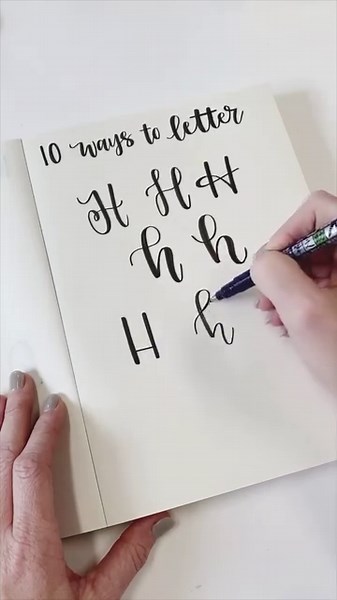 10 ways to letter
H H H
h h
H h